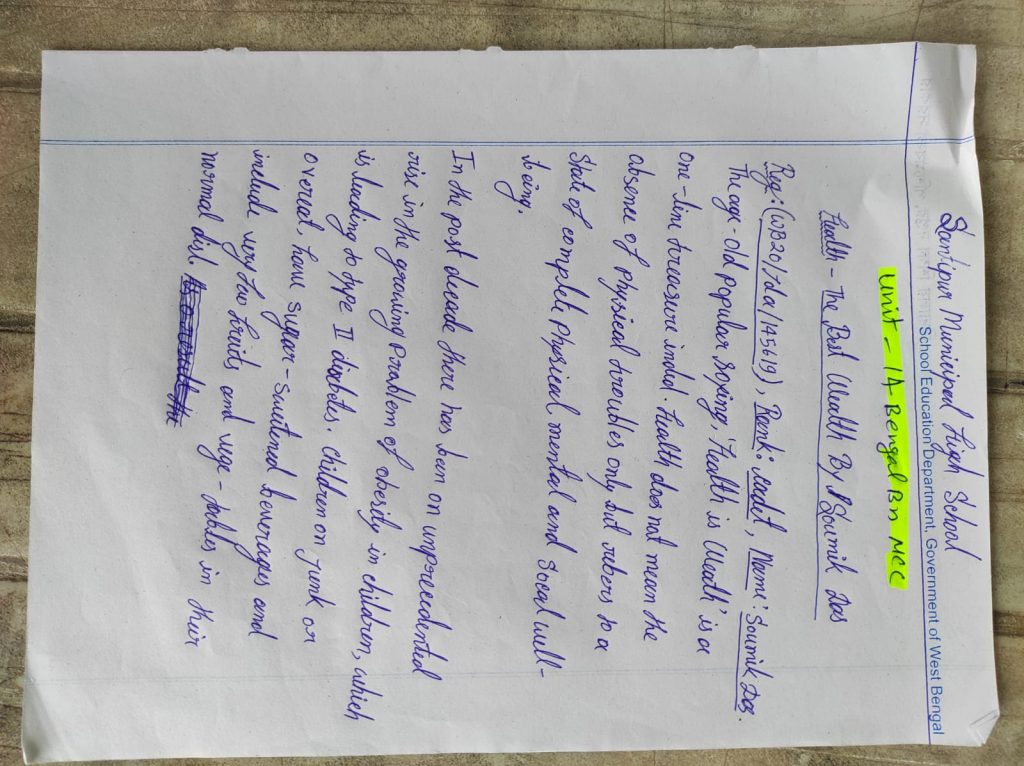 Santipur Municipal High School
School Education Department, Government of West Bengal
Unit - 1A Bengal Bn MCC
Health - The Best Wealth By Soumik Das
Reg: (WB20/sda/145619), Rank: cadet, Name: Soumik Das.
The age-old popular saying, 'Health is Wealth' is a
one-line treasure indeed. Health does not mean the
absence of physical troubles only but refers to a
State of complete physical mental and Social well-
being.
In the past decade there has been an unprecedented
rise in the growing problem of obesity in children, which
is leading to type II diabetes. Children on junk or
overeat, have sugar-sweetened beverages and
include very few fruits and vege-tables in their
normal diet